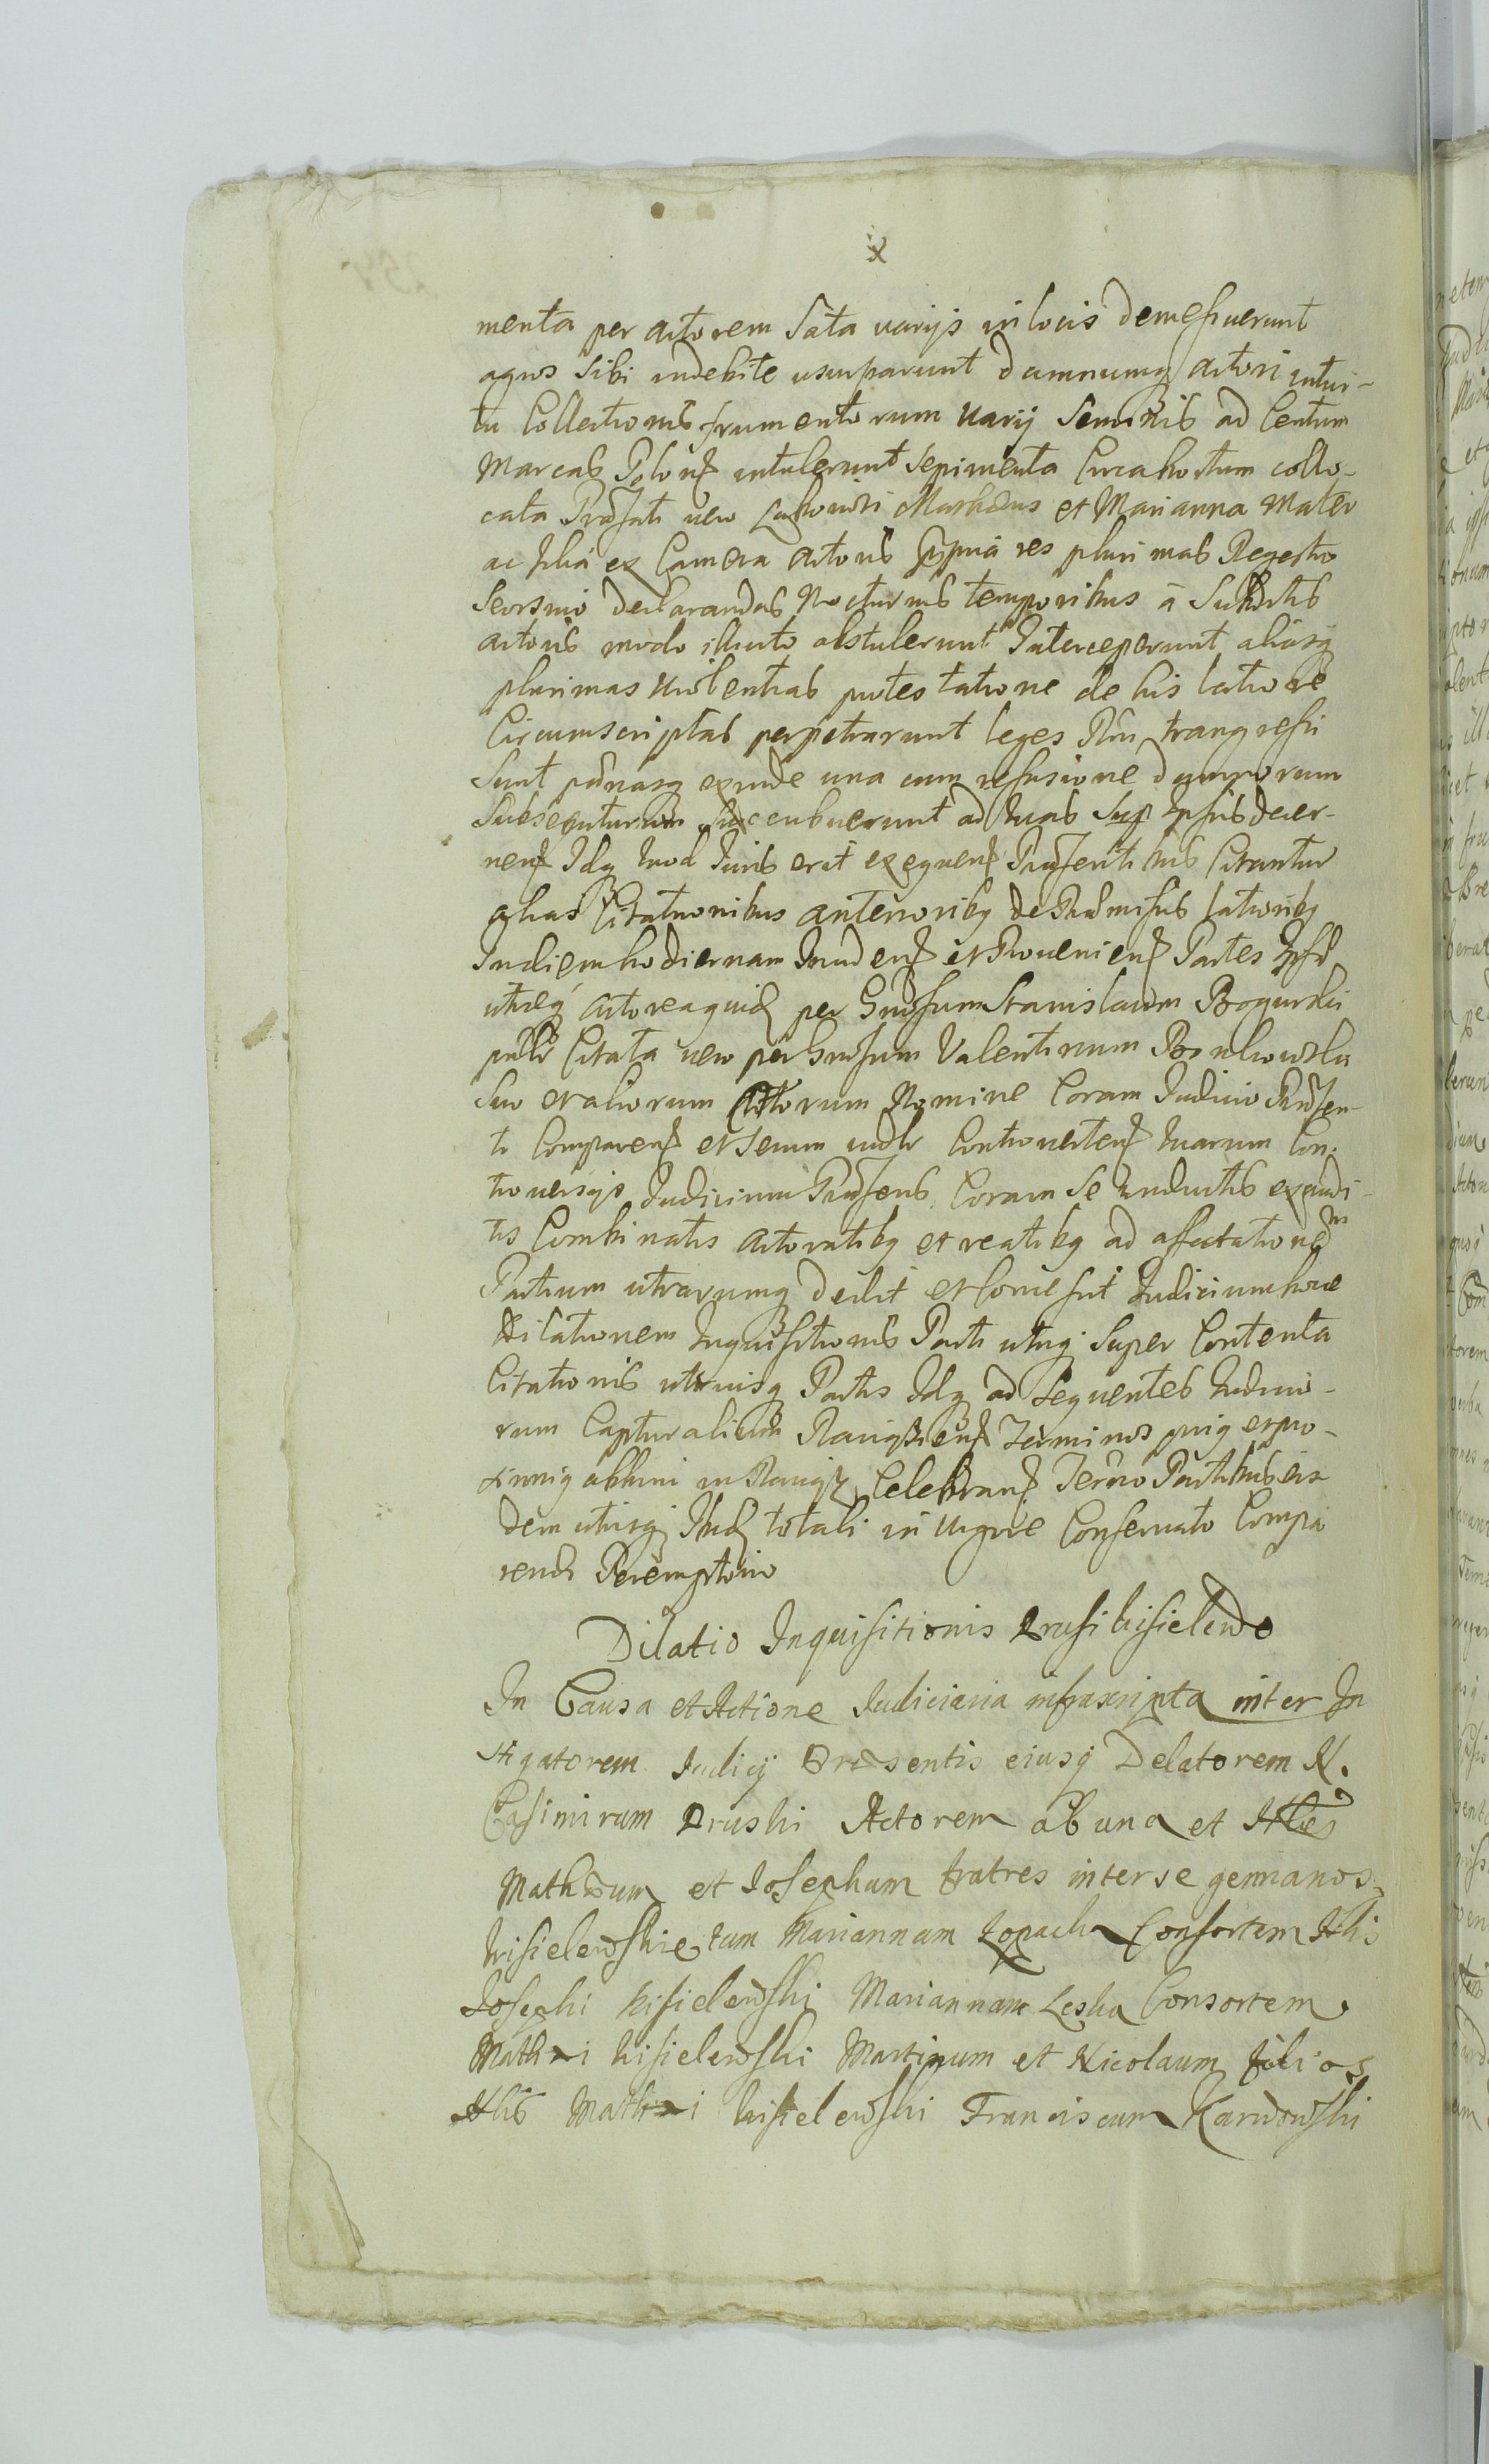 x
menta per actorem Sata varijs in locis demessuerunt
agros Sibi indebite usurparunt damnumq actori intui-
tu Collectionis frumentorum varij Seminis ad Centum
Marcas Polon intulerunt Sepimenta Circa hortum collo-
cata Præfati vero Mathæus et Marianna Mater
ac filia ex Camera actoris propria res plurimas Regestro
Seorsivo declarandas Nocturnis temporibus á Subditis
actoris modo illicito abstulerunt Interceperunt aliasq
plurimas violentias protestatione de his latiore
Circumscriptas perpetrarunt leges Rni transgressi
Sunt pænasq exinde una cum refusione damnorum
Subsecutorum Succubuerunt ad quas Sup Ipsis decer-
nen Idq quod Juris erit exequen Præsentibus Citantur
alias Citationibus anterioribq de Præmissis latioribq
In diem hodiernam Inciden et Provenien Partes Ipsæ
utræq actorea quid per Gnosum Stanislaum Bogurski
Citata vero per Gnosum Valentinum
Suo et aliorum Actorum Nomine Coram Judicio Præsen-
ti Comparen et Secum Controverten quarum Con-
troversijs Judicium Præsens Coram Se Inductis exaudi-
tis Combinatis actoratibq et reatibq ad affectationem
Partium utrarumq dedit et Concessit Judicium hocce
dilationem Inquisitionis Parti utriq Super Contenta
Citationis utriusq Partis Idq ad Sequentes Judicio-
rum Capturalium Terminos et pro-
abhinc in Celebran Termo Partibus eis
dem utrisq totali in vigore Conservato Compa
rendi Peremptorio
Dilatio Inquisitionis Kruski Kisielewo
In Causa et Actione Judiciaria infrascripta inter In
stigatorem Judicij Præsentis eiusq Delatorem N.
Casimirum Kruski Actorem ab una et Nbles
Mathæum et Josephum fratres inter se germanos
Kisielewskie tum Mariannam Consortem Nblis
Josephi Kisielewski Mariannam Leska Consortem
Mathæi Kisielewski Martinum et Nicolaum filios
Nblis Mathæi Kisielewski Franciscum Karwowski